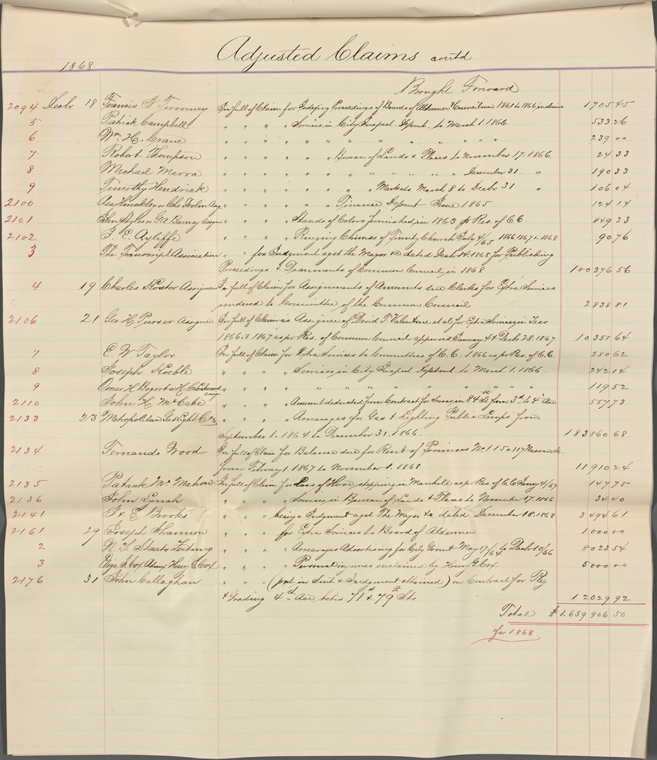 Adjusted Claims contd
1868
Brought Forward
2094 Decbr 18 Francis F Twoomey In full of Claim for Indexing Proceedings of Boards of Aldermen & 1705 45
5 Patrick Campbell " " " " Services in City Inspect. Depmt. to March 1. 1866 533 26
6 Wm. H. Crane " " " " " " " " " " " 239 00
7 Robert Thompson " " " " Bureau of Lands & Places to November 17. 1866 24 33
8 Michael " " " " " " " " December 31. " 190 33
9 Timothy " " " " Markets March 8 to Decbr 31 " 106 04
2100 " " " " Finance Depmt 1865 124 14
2101 " " " " Stands of Colors furnished in 1863 Res of C.C. 849 23
2102 F. C. Ayliffe " " " " Ringing Chimes of Trinity Church July 4/65 1866 1867 & 1868 90 76
3 The Transcript Association " " for Judgment agst the Mayor &c dated 1868 for Publishing
Proceedings & Documents of Common Council in 1868 100396 56
4 19 Charles Assignee In full of Claim for Assignments of Amounts due Clerks for Extra Services
rendered to Committee of the Common Council 2838 81
2106 21 Geo H. Purser Assignee In full of Claim as Assignee of David T Valentine et al for Extra Services in Years
1866 & 1867 as p Res. of Common Council approved 1867 10351 64
7 E W Taylor In full of Claim for Extra Services to Committees of C.C. 1866 as p Res. of C.C. 280 62
8 Joseph " " " " Services in City Inspect Depmt to March 1. 1866 242 14
9 " " " " " " " " " " 119 52
2110 John H. McCabe " " " " Amount deducted from Contract for Sewer in 84th St from 3d to 4th Ave 557 73
2133 23 Metropolitan Gas Light Co " " " " Arrearages for Gas & Lighting Public Lamps from
September 1. 1864 to December 31. 1866 183860 68
2134 Fernando Wood In full of Claim for Balance due for Rent of Premises No 115 & 117
from February 1 1867 to November 1. 1868 11910 24
2135 Patrick McMahon In full of Claim for Loss of Horse stepping in Manhole as p Res of C.C. 147 75
2136 John Lynch " " " " Services in Bureau of Lands & Places to November 17, 1866 34 40
2141 F. E. Brooks " " " being a Judgment agst The Mayor &c dated December 18. 1868 3494 61
2161 29 Joseph Shannon " " " for Extra Services to Board of Aldermen 1000 00
2 N. Y. Staats Zeitung " " " Arrearages Advertising for City Govmt May 17/64 to Decbr 10/66 8023 54
3 Cox Admx Henry G. Cox " " " Portion in was retained by Henry G. Cox 5000 00
2176 31 John Callaghan " " " (for in Suit & Judgment obtained) on Contract for Reg
& Grading 4th Ave betw 71st & 79th Sts 12029 92
Total $ 1.659 906 50
for 1868